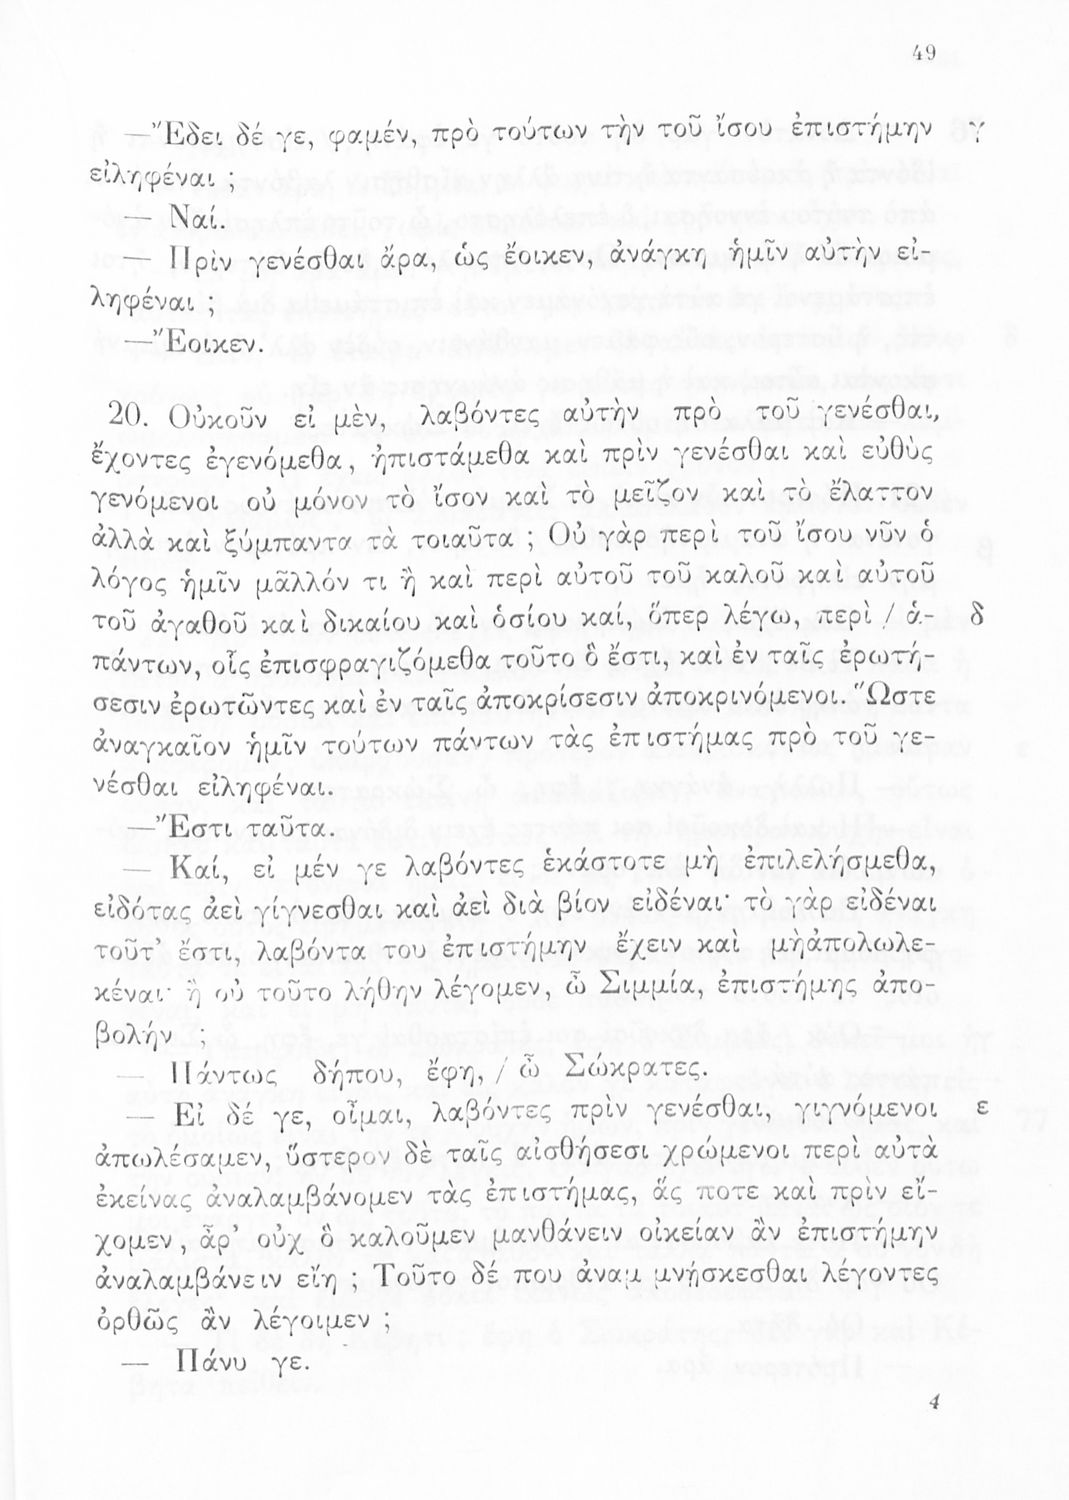 49
—Ἔδει δέ γε, φαμέν, πρὸ τούτων τὴν τοῦ ἴσου ἐπιστήμην γ
εἰληφέναι ;
— Ναί.
— Πρὶν γενέσθαι ἄρα, ὡς ἔοικεν, ἀνάγκη ἡμῖν αὐτὴν εἰ-
ληφέναι ;
—Ἔοικεν.
20. Οὐκοῦν εἰ μὲν, λαβόντες αὐτὴν πρὸ τοῦ γενέσθαι,
ἔχοντες ἐγενόμεθα, ἠπιστάμεθα καὶ πρὶν γενέσθαι καὶ εὐθὺς
γενόμενοι οὐ μόνον τὸ ἴσον καὶ τὸ μεῖζον καὶ τὸ ἔλαττον
ἀλλὰ καὶ ξύμπαντα τὰ τοιαῦτα ; Οὐ γὰρ περὶ τοῦ ἴσου νῦν ὁ
λόγος ἡμῖν μᾶλλόν τι ἢ καὶ περὶ αὐτοῦ τοῦ καλοῦ καὶ αὐτοῦ
τοῦ ἀγαθοῦ καὶ δικαίου καὶ ὁσίου καί, ὅπερ λέγω, περὶ / ἁ- δ
πάντων, οἷς ἐπισφραγιζόμεθα τοῦτο ὃ ἔστι, καὶ ἐν ταῖς ἐρωτή-
σεσιν ἐρωτῶντες καὶ ἐν ταῖς ἀποκρίσεσιν ἀποκρινόμενοι. Ὥστε
ἀναγκαῖον ἡμῖν τούτων πάντων τὰς ἐπιστήμας πρὸ τοῦ γε-
νέσθαι εἰληφέναι.
—Ἔστι ταῦτα.
— Καί, εἰ μέν γε λαβόντες ἑκάστοτε μὴ ἐπιλελήσμεθα,
εἰδότας ἀεὶ γίγνεσθαι καὶ ἀεὶ διὰ βίον εἰδέναι· τὸ γὰρ εἰδέναι
τοῦτ' ἔστι, λαβόντα του ἐπιστήμην ἔχειν καὶ μὴἀπολωλε-
κέναι· ἢ οὐ τοῦτο λήθην λέγομεν, ὦ Σιμμία, ἐπιστήμης ἀπο-
βολήν ;
— Πάντως δήπου, ἔφη, / ὦ Σώκρατες.
— Εἰ δέ γε, οἶμαι, λαβόντες πρὶν γενέσθαι, γιγνόμενοι ε
ἀπωλέσαμεν, ὕστερον δὲ ταῖς αἰσθήσεσι χρώμενοι περὶ αὐτὰ
ἐκείνας ἀναλαμβάνομεν τὰς ἐπιστήμας, ἅς ποτε καὶ πρὶν εἴ-
χομεν, ἆρ' οὐχ ὃ καλοῦμεν μανθάνειν οἰκείαν ἂν ἐπιστήμην
ἀναλαμβάνειν εἴη ; Τοῦτο δέ που ἀναμιμνήσκεσθαι λέγοντες
ὀρθῶς ἂν λέγοιμεν ;
— Πάνυ γε.
4